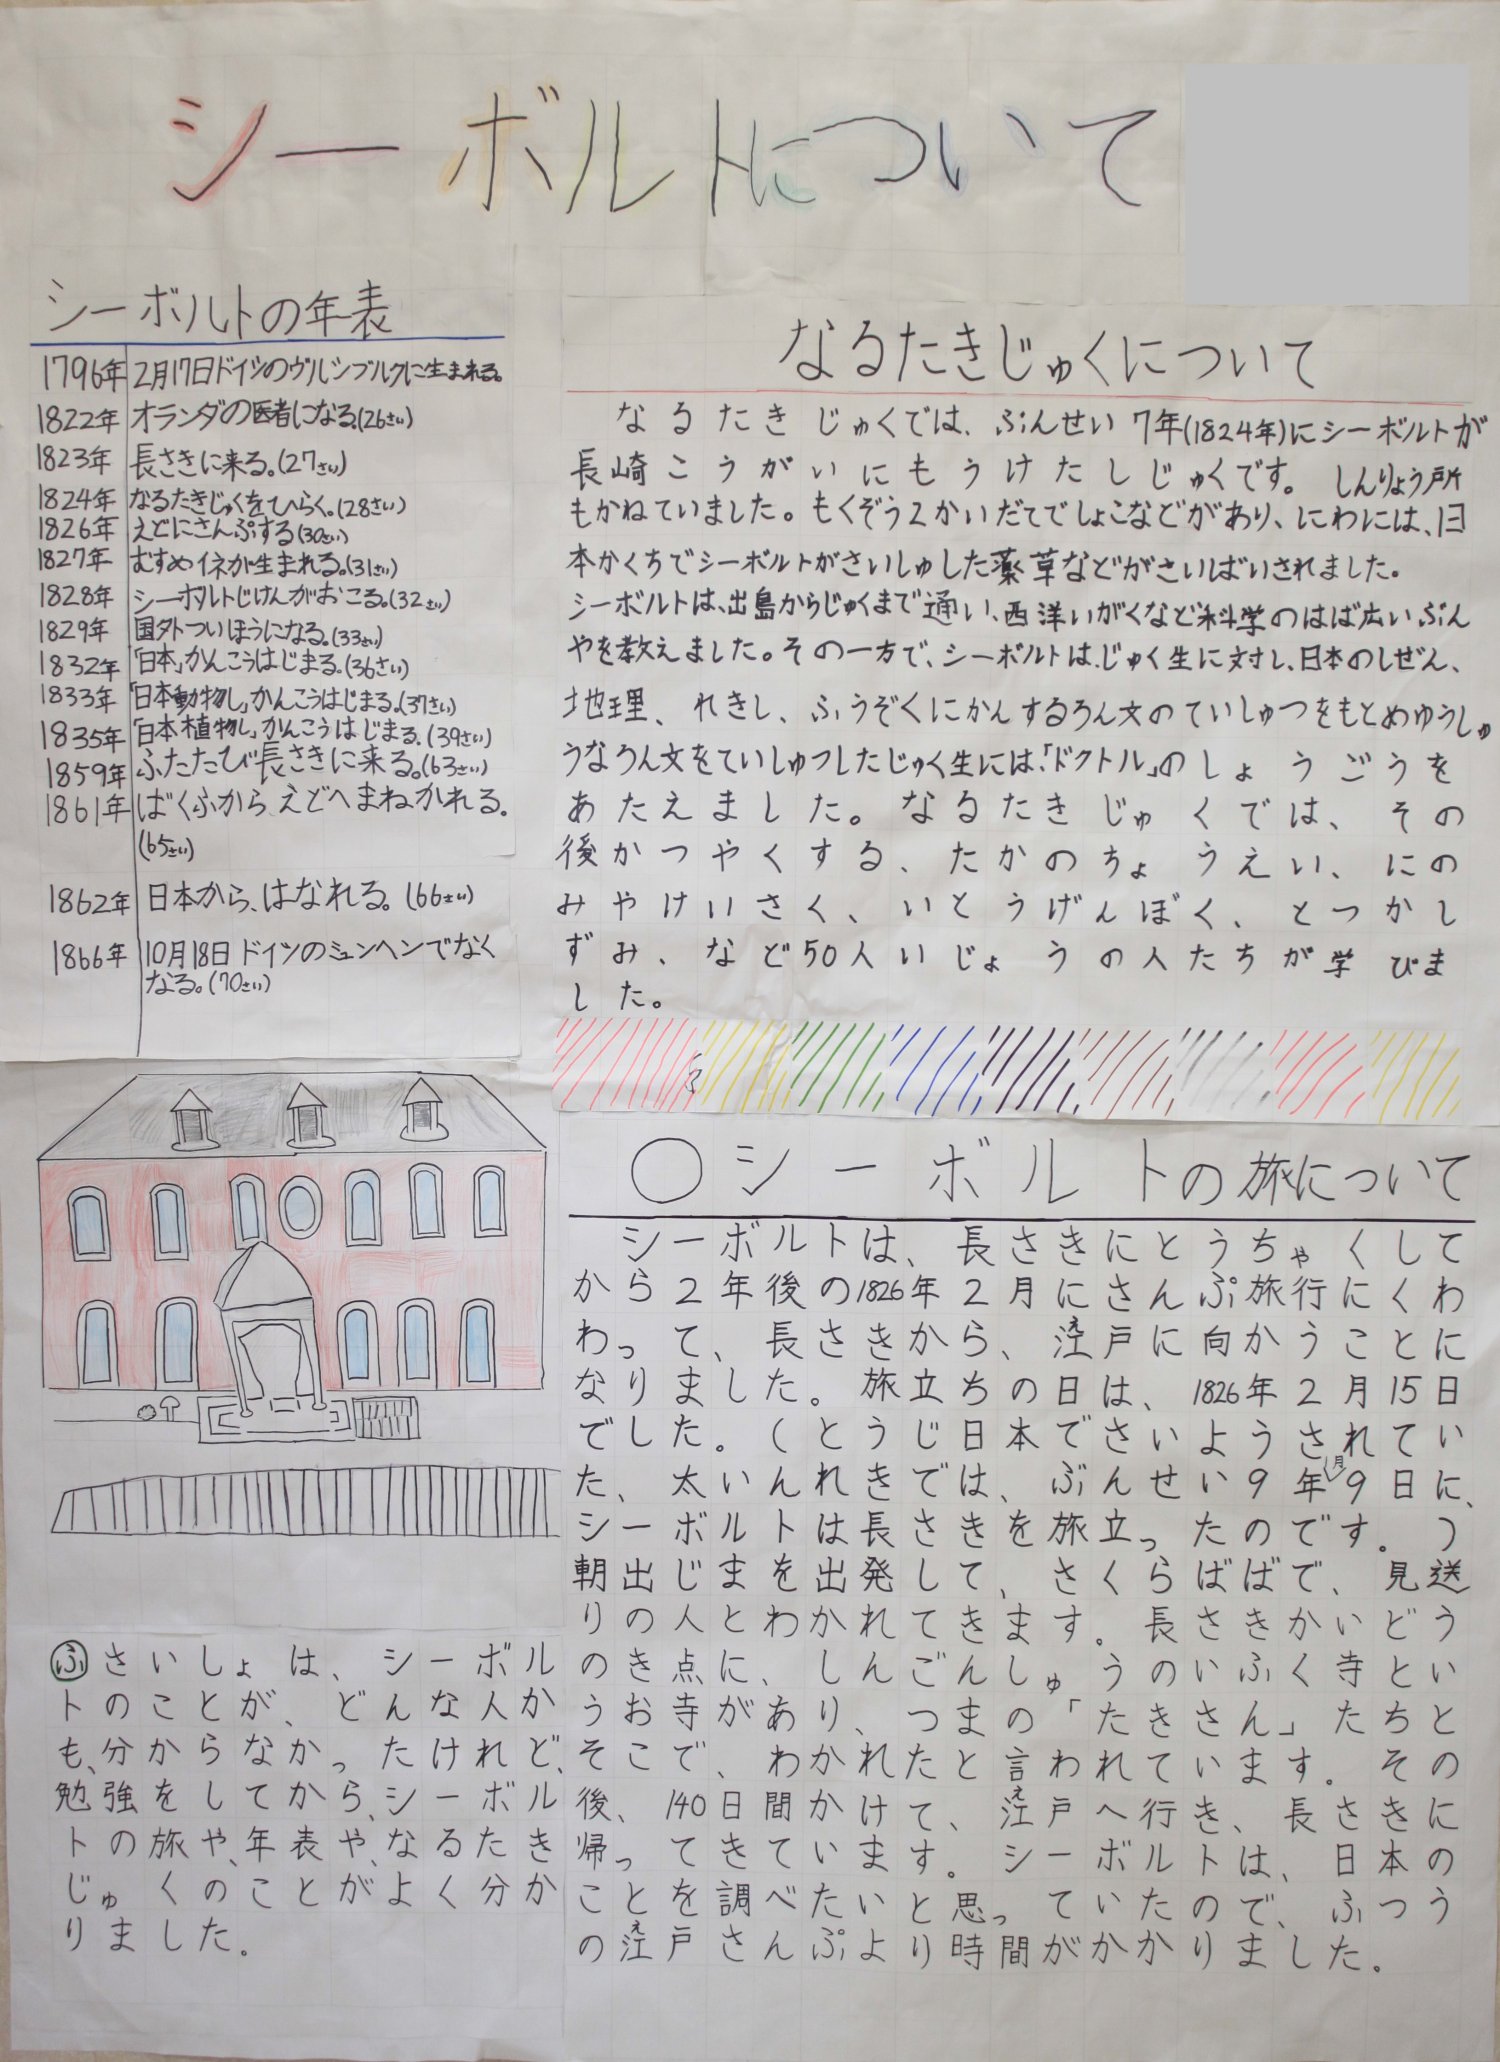 シーボルトについて
シーボルトの年表
1796年 2月17日ドイツのヴルシブルクに生まれる。
1822年 オランダの医者になる。(26さい)
1823年 長さきに来る。(27さい)
1824年 なるたきじゅくをひらく。(28さい)
1826年 えどにさんぷする(30さい)
1827年 むすめイネが生まれる。(31さい)
1828年 シーボルトじけんがおこる。(32さい)
1829年 国外ついほうになる。(33さい)
1832年 「日本」かんこうはじまる。(36さい)
1833年 「日本動物し」かんこうはじまる。(37さい)
1835年 「日本植物し」かんこうはじまる。(39さい)
1859年 ふたたび長さきに来る。(63さい)
1861年 ばくふから、えどへまねかれる。
(65さい)
1862年 日本から、はなれる。(66さい)
1866年 10月18日ドイツのミュンヘンでなく
なる。(70さい)
なるたきじゅくについて
なるたきじゅくでは、ぶんせい7年(1824年)にシーボルトが
長崎こうがいにもうけたしじゅくです。しんりょう所
もかねていました。もくぞう2かいだてでしょこなどがあり、にわには、日
本かくちでシーボルトがさいしゅした薬草などがさいばいされました。
シーボルトは、出島からじゅくまで通い、西洋いがくなど科学のはば広いぶん
やを教えました。その一方で、シーボルトは、じゅく生に対し、日本のしぜん、
地理、れきし、ふうぞくにかんするろん文のていしゅつをもとめゆうしゅ
うなろん文をていしゅつしたじゅく生には、「ドクトル」のしょうごうを
あたえました。なるたきじゅくでは、その
後かつやくする、たかのちょうえい、にの
みやけいさく、いとうげんぼく、とつかし
ずみ、など50人いじょうの人たちが学びま
した。
○シーボルトの旅について
シーボルトは、長さきにとうちゃくして
から2年後の1826年2月にさんぷ旅行にくわ
わって、長さきから、江戸に向かうことに
なりました。旅立ちの日は、1826年2月15日
でした。(とうじ日本でさいようされてい
た、太いんれきでは、ぶんせい9年月9日に、
シーボルトは長さきを旅立ったのです。)
朝出じまを出発して、さくらばばで、見送
りの人とわかれてきます。長さきかいどう
のき点に、しんごんしゅうのいふく寺とい
うお寺があり、つまの「たきさん」たちと
そこで、わかれたと言われています。その
後、140日間かけて、江戸へ行き、長さきに
帰ってきています。シーボルトは、日本の
ことを調べたいと思っていたので、ふつう
の江戸さんぷより時間がかかりました。
ふ さいしょは、シーボル
トのことが、どんな人か
も、分からなかったけれど、
勉強をしてから、シーボル
トの旅や、年表や、なるたき
じゅくのことがよく分か
りました。